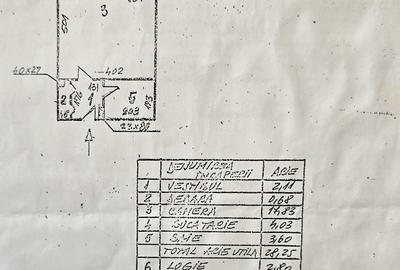 3
405
402
40x27
131
2
1
5
203
23x80
DENUMIREA ÎNCĂPERII ARIE
1 VESTIBUL 2,11
2 DEBARA 0,68
3 CAMERA 17,83
4 BUCĂTĂRIE 4,03
5 BAIE 3,60
TOTAL ARIE UTILĂ 28,25
6 LOGIE 2,80